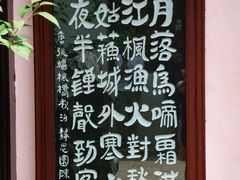 月落烏啼霜滿
江楓漁火對愁
姑蘇城外寒
夜半鐘聲到客
唐張繼楓橋夜泊 靜思園陳